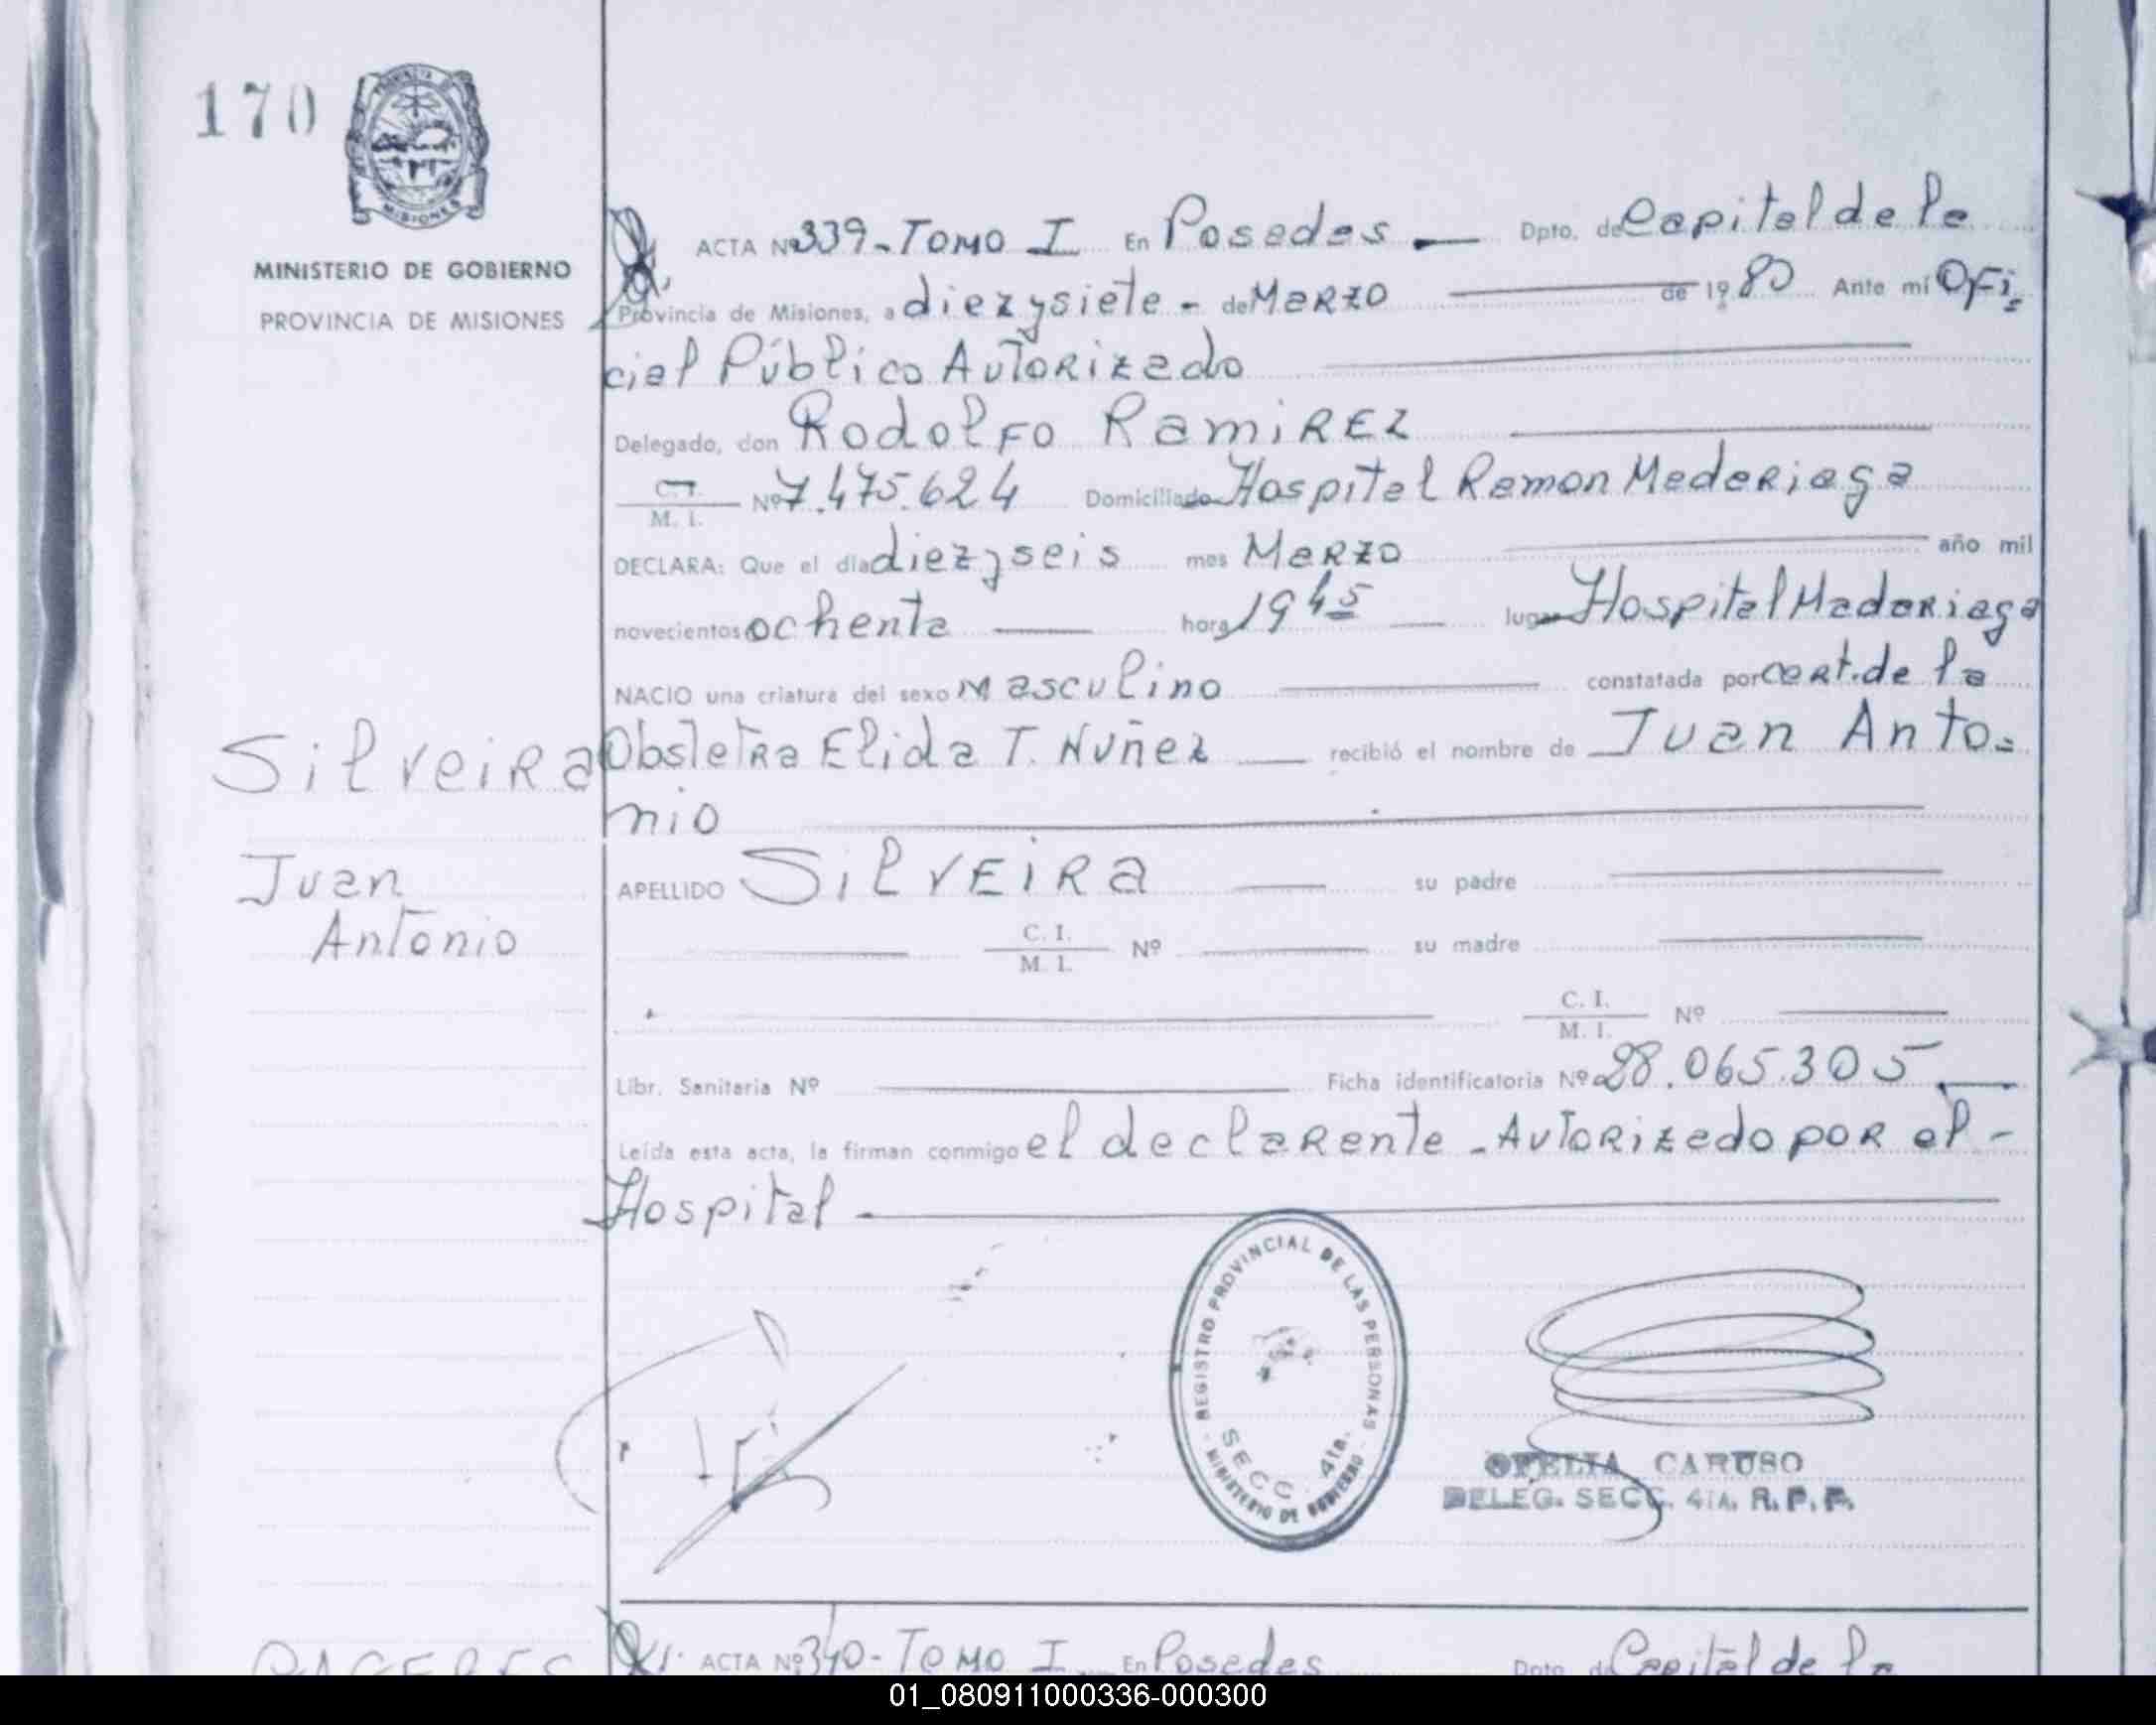 170
PROVINCIA DE
MISIONES
MINISTERIO DE GOBIERNO
PROVINCIA DE MISIONES
ACTA Nº 339 - Tomo I En Posadas — Dpto. de Capital de la
Provincia de Misiones, a diez y siete - de Marzo de 1980 Ante mí Ofi=
cial Público Autorizado
Delegado, don Rodolfo Ramirez
C. I. / M. I. Nº 7.475.624 Domiciliado Hospital Ramon Madariaga
DECLARA: Que el día diez y seis mes Marzo año mil
novecientos ochenta — hora 19 45 — lugar Hospital Madariaga
NACIO una criatura del sexo masculino constatada por cert. de la
Silveira
Obstetra Elida T. Nuñez — recibió el nombre de Juan Anto=
nio
Juan
Antonio
APELLIDO Silveira — su padre
C. I. / M. I. Nº su madre
C. I. / M. I. Nº
Libr. Sanitaria Nº Ficha identificatoria Nº 28.065.305
Leída esta acta, la firman conmigo el declarante - Autorizado por el -
Hospital -
REGISTRO PROVINCIAL DE LAS PERSONAS
SECC. 4ta.
- MINISTERIO DE GOBIERNO -
OFELIA CARUSO
DELEG. SECC. 4TA. R. P. P.
ACTA Nº 340 - Tomo I En Posadas Dpto. de Capital de la
01_080911000336-000300